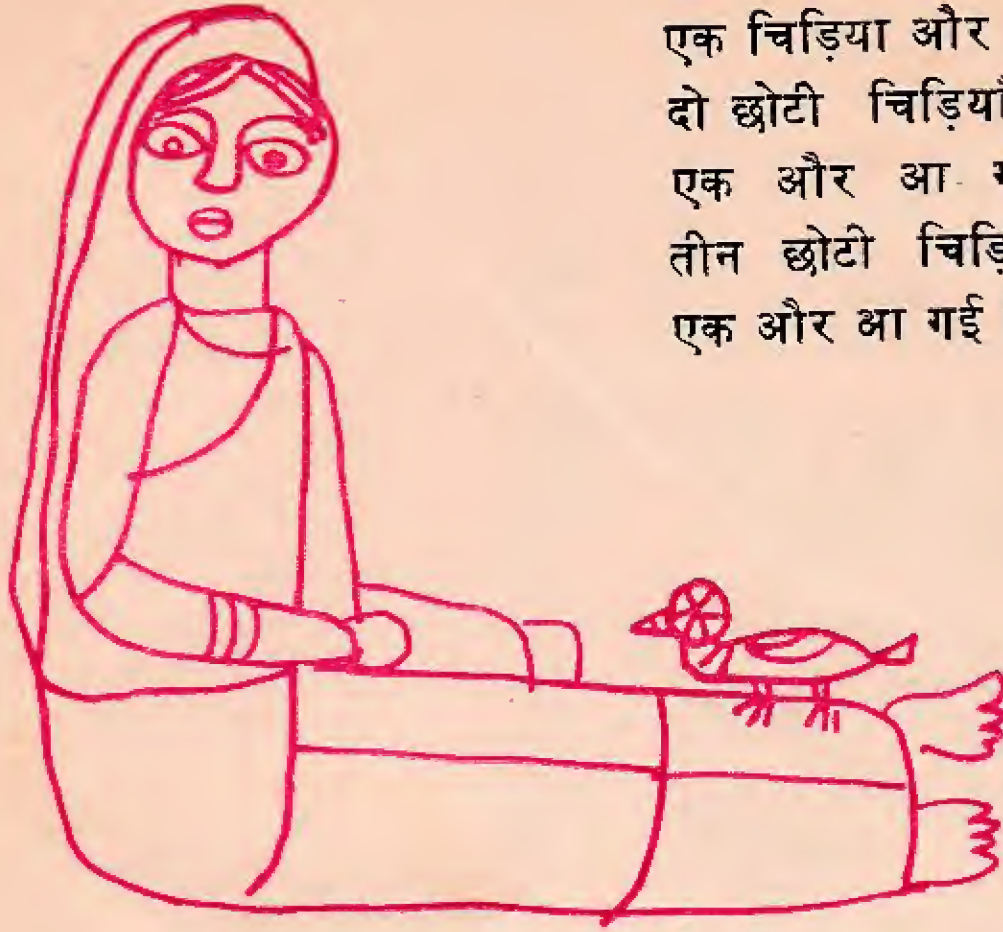 एक चिड़िया और
दो छोटी चिड़ियाँ
एक और आ
तीन छोटी
एक और आ गई